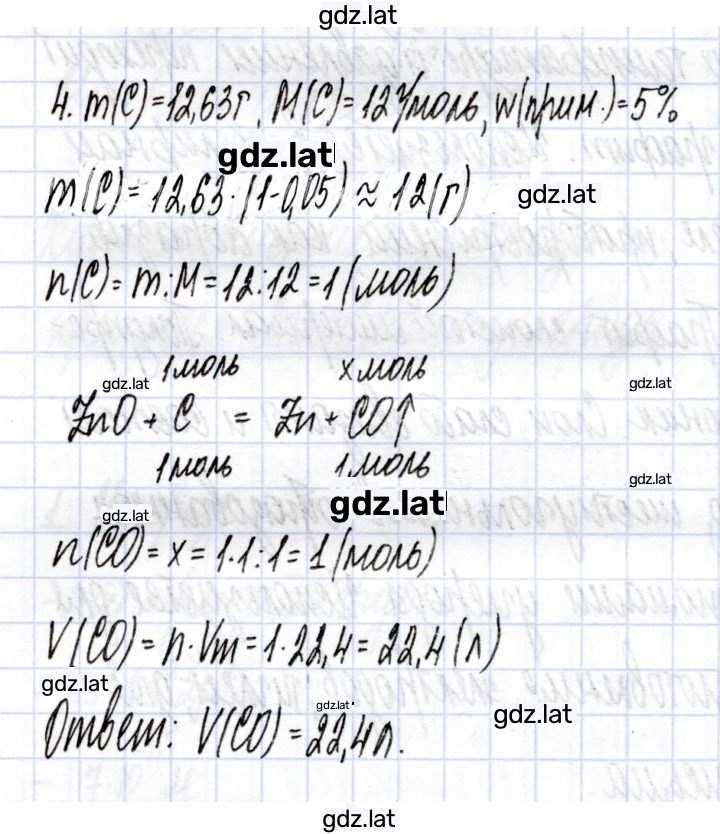 gdz.lat
4. m(C)=12,63г, M(C)=12 г/моль, w(прим.)=5%
gdz.lat
m(C)=12,63·(1-0,05)≈12(г)
gdz.lat
n(C)=m:M=12:12=1(моль)
1моль х моль
gdz.lat gdz.lat
ZnO + C = Zn + CO↑
1моль 1.моль
gdz.lat
gdz.lat
gdz.lat
n(CO)=x=1·1:1=1(моль)
V(CO)=n·Vm=1·22,4=22,4(л)
gdz.lat
gdz.lat
gdz.lat
Ответ: V(CO)=22,4л.
gdz.lat